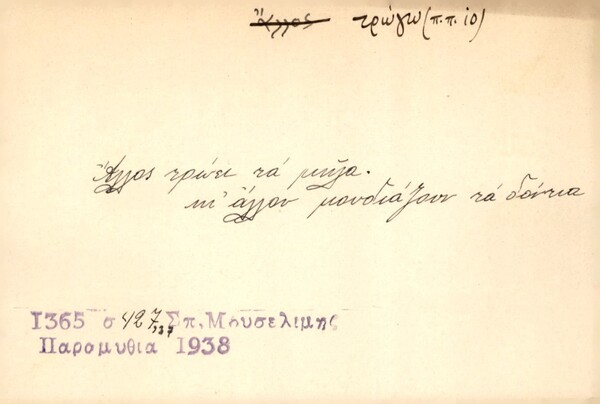 Ἄλλος τρώγω (π.π. 10)
Ἄλλος τρώει τά μῆλα.
κι' ἄλλου μουδιάζουν τά δόντια
1365 σ 427,137 Σπ. Μουσελιμης
Παραμυθια 1938